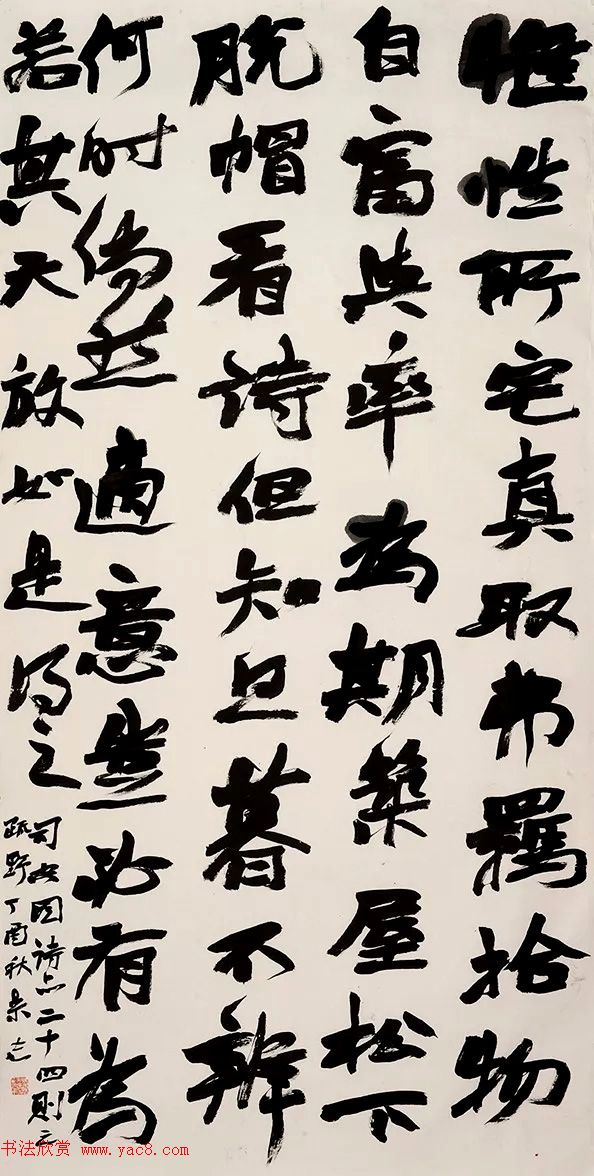 惟性所宅真取弗羈拾物
自富與率為期築屋松下
脱帽看詩但知旦暮不辨
何时倘然適意豈必有為
若其天放如是得之
司空図詩品二十四則之
疏野丁酉秋
书法欣赏 www.yac8.com